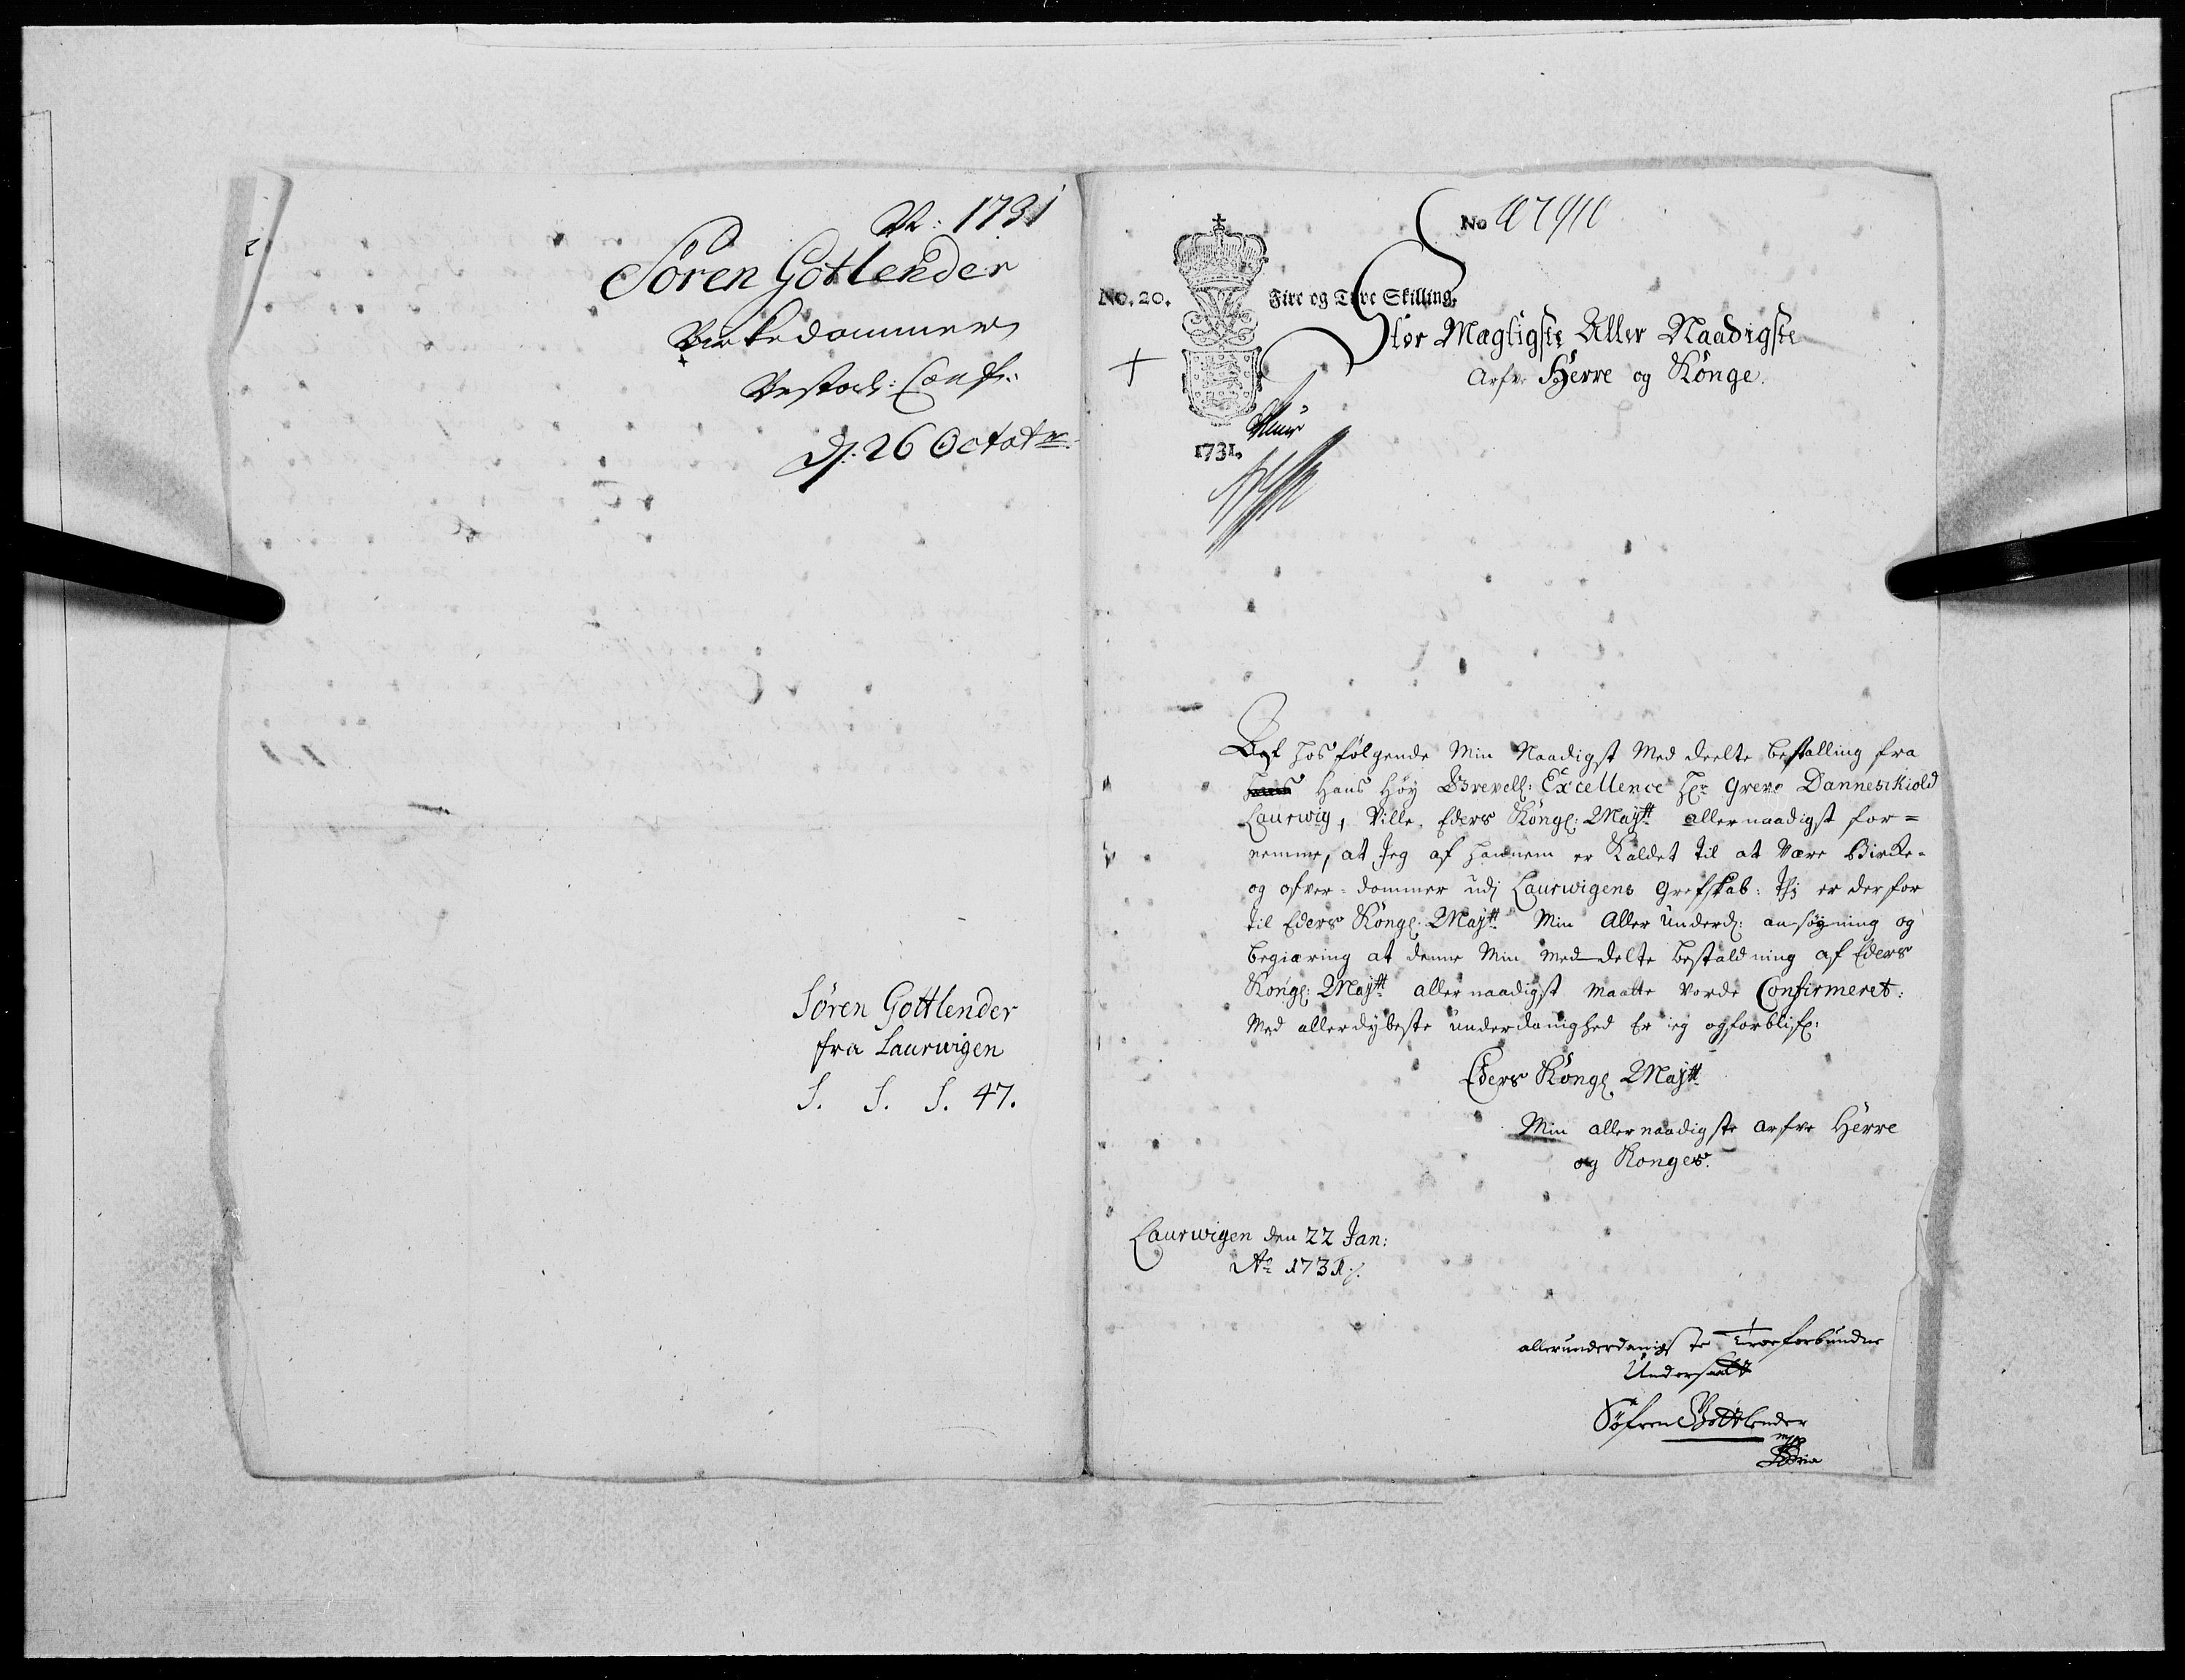 1731
Sören Gotlender
Birkedommer
Bestal: Conf:
d: 26 Octobr:
Sören Gottlender
fra Laurwigen
S. S. S. 47.
No
No. 20. Fire og Tyve Skilling.
1731.
Stor Mægtigste Aller Naadigste
Arfve Herre og Konge.
Af hos følgende Min Naadigst Med deelte bestalling fra
Hans Høy Grevel: Excellence Hr Greve Danneskiold
Laurwig, Ville Eders Kongl: Maytt allernaadigst for=
nemme, at Jeg af hannem er Kaldet til at Være Birke-
og ofver-dommer udj Laurwigens Grefskab: Thj er derfor
til Eders Kongl: Maytt Min Aller Underd: ansøgning og
begiæring at denne Min med delte bestaldning af Eders
Kongl: Maytt allernaadigst maatte vorde Confirmeret:
Med allerdybeste underdanighed Er ieg og forblifr:
Eders Kongl Maytt
Min allernaadigste arfve Herre
og Konges.
Laurwigen den 22 Jan:
Ao 1731
allerunderdanigste Troeforbundne
Undersaatt
Søfren Gottlender
mp